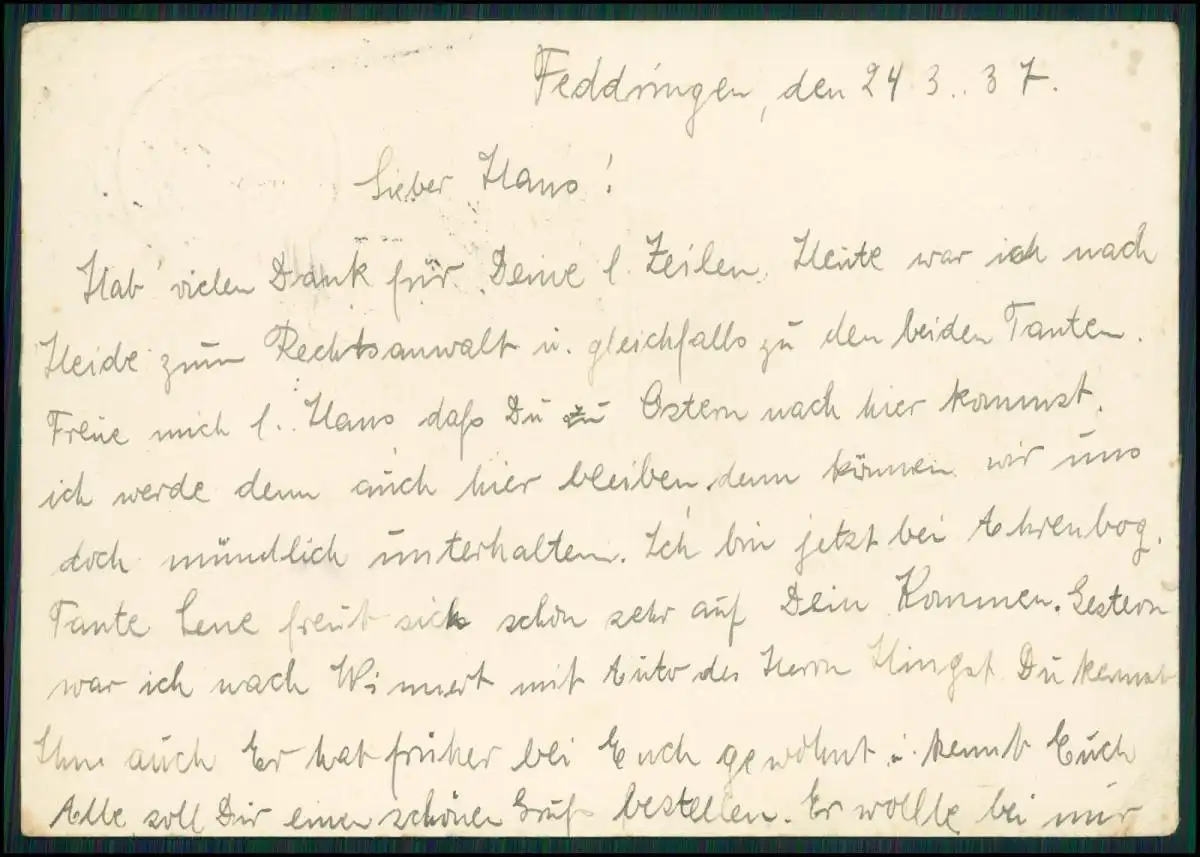 Feddringen, den 24 3.. 37.
Lieber Hans!
Hab' vielen Dank für Deine l. Zeilen. Heute war ich nach
Heide zum Rechtsanwalt u. gleichfalls zu den beiden Tanten.
Freue mich l. Hans daß Du zu Ostern nach hier kommst.
ich werde denn auch hier bleiben, denn können wir uns
doch mündlich unterhalten. Ich bin jetzt bei Ahrenbog.
Tante Lene freut sich schon sehr auf Dein Kommen. Gestern
war ich nach Wismert mit Auto des Herrn Hingst Du kennst
Ihm auch Er hat früher bei Euch gewohnt u. kennt Euch
Alle soll Dir einen schönen Gruß bestellen. Er wollte bei mir